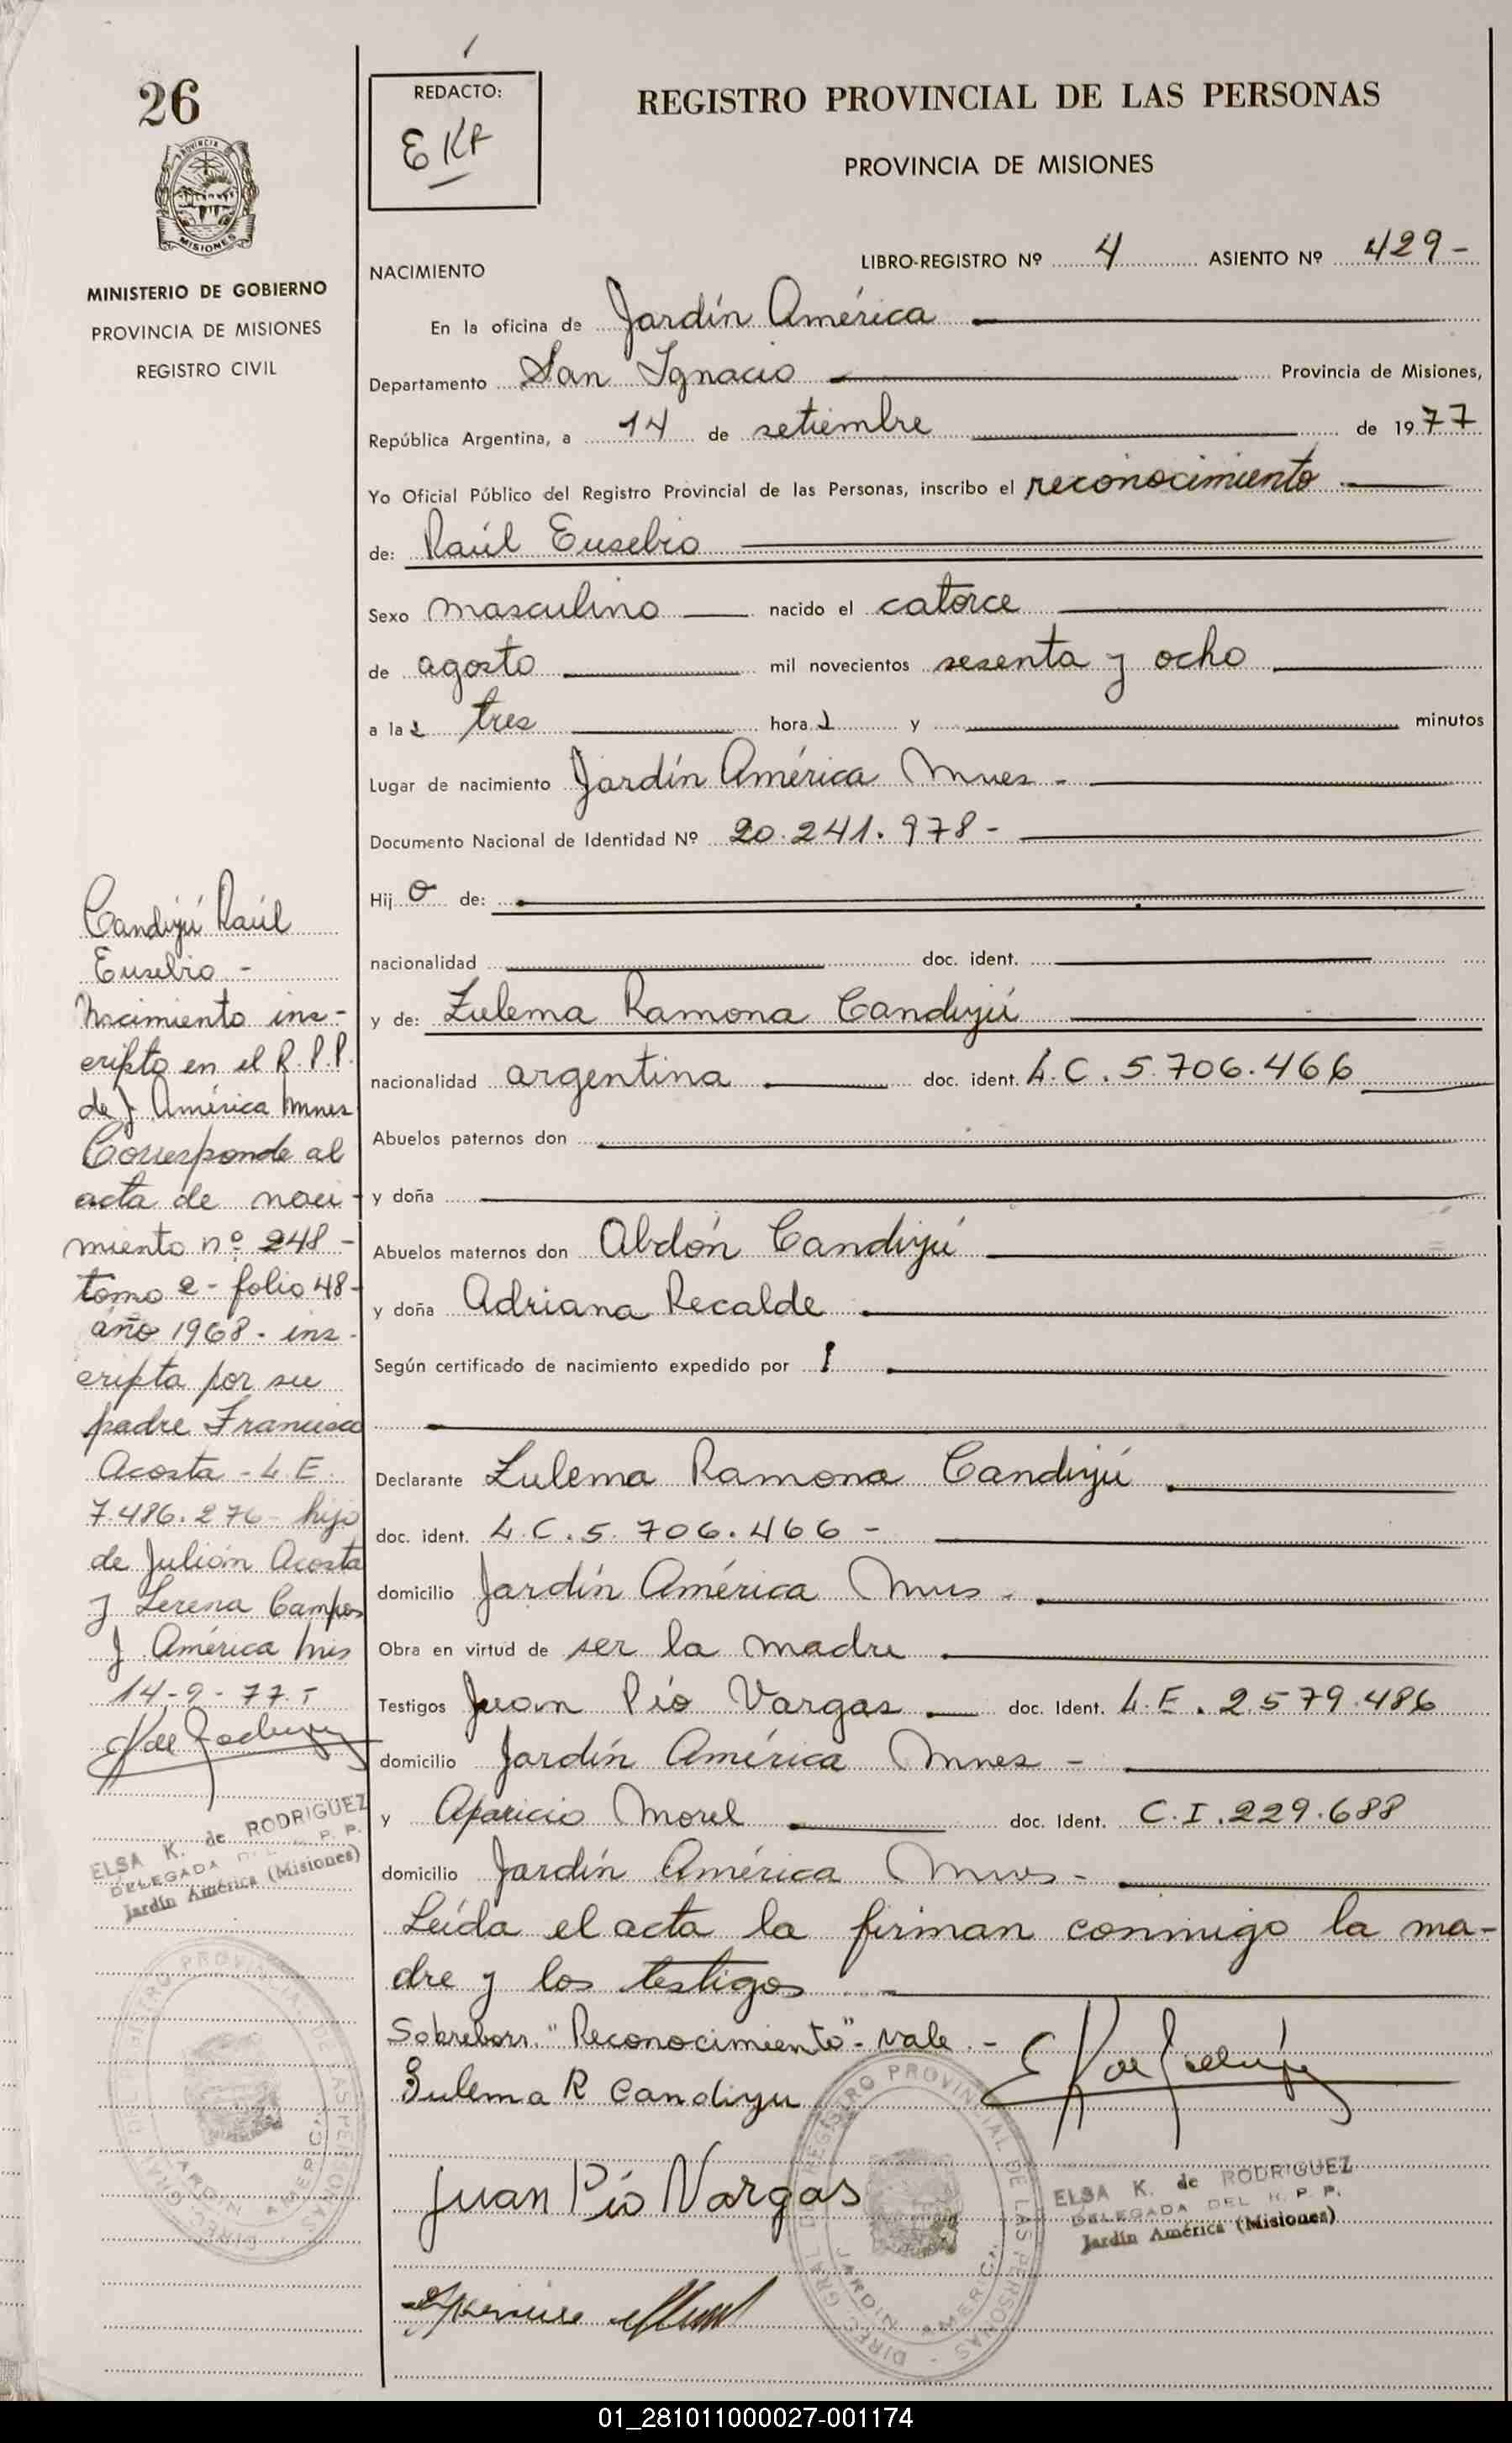 26
PROVINCIA DE
MISIONES
MINISTERIO DE GOBIERNO
PROVINCIA DE MISIONES
REGISTRO CIVIL
REDACTO:
EKR
REGISTRO PROVINCIAL DE LAS PERSONAS
PROVINCIA DE MISIONES
NACIMIENTO
LIBRO-REGISTRO Nº 4 ASIENTO Nº 429-
En la oficina de Jardín América
Departamento San Ignacio Provincia de Misiones,
República Argentina, a 14 de setiembre de 1977
Yo Oficial Público del Registro Provincial de las Personas, inscribo el reconocimiento
de: Raúl Eusebio
Sexo masculino nacido el catorce
de agosto mil novecientos sesenta y ocho
a las tres horas y minutos
Lugar de nacimiento Jardín América Mnes -
Documento Nacional de Identidad Nº 20.241.978-
Hijo de:
nacionalidad doc. ident.
y de: Zulema Ramona Candiyú
nacionalidad argentina doc. ident. L.C. 5.706.466
Abuelos paternos don
y doña
Abuelos maternos don Abdón Candiyú
y doña Adriana Recalde
Según certificado de nacimiento expedido por
Declarante Zulema Ramona Candiyú
doc. ident. L.C. 5.706.466 -
domicilio Jardín América Mnes -
Obra en virtud de ser la madre
Testigos Juan Pío Vargas doc. Ident. L.E. 2.579.486
domicilio Jardín América Mnes -
y Aparicio Morel doc. Ident. C.I. 229.688
domicilio Jardín América Mnes -
Leída el acta la firman conmigo la ma-
dre y los testigos
Sobreborr. "Reconocimiento"- vale. -
Zulema R Candiyu
Juan Pío Vargas
ELSA K. de RODRIGUEZ
DELEGADA DEL R. P. P.
Jardín América (Misiones)
DIREC. GRAL. DE REGISTRO PROVINCIAL DE LAS PERSONAS
JARDIN AMERICA
Candiyú Raúl
Eusebio -
Nacimiento ins-
cripto en el R.P.P.
de J. América Mnes
Corresponde al
acta de naci-
miento nº 248 -
tomo 2 - folio 48-
año 1968 - ins-
cripta por su
padre Francisco
Acosta - L.E.
7.486.276 - hijo
de Julián Acosta
y Serena Campos
J. América Mnes
14-9-77.-
ELSA K. de RODRIGUEZ
DELEGADA DEL R. P. P.
Jardín América (Misiones)
DIREC. GRAL. DE REGISTRO PROVINCIAL DE LAS PERSONAS
JARDIN AMERICA
01_281011000027-001174